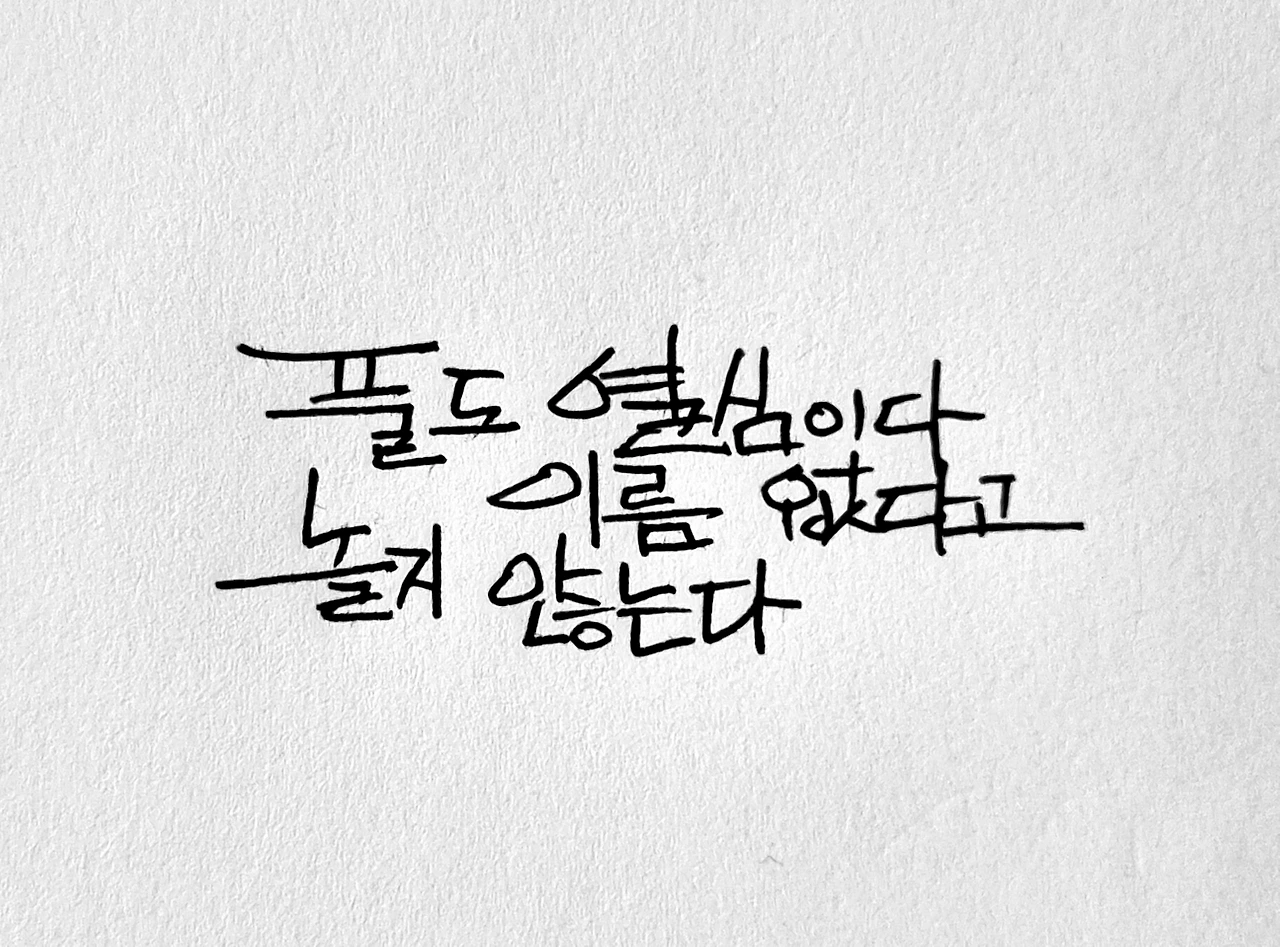 풀도 열심이다
이름 없다고
놀지 않는다